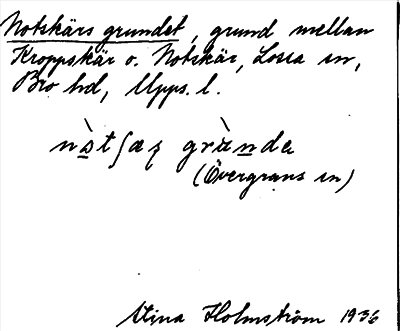 Notskärs grundet, grund mellan
Kroppskär o. Notskär, Lossa sn,
Bro hd, Upps. l.
(Övergrans sn)
Stina Holmström 1936